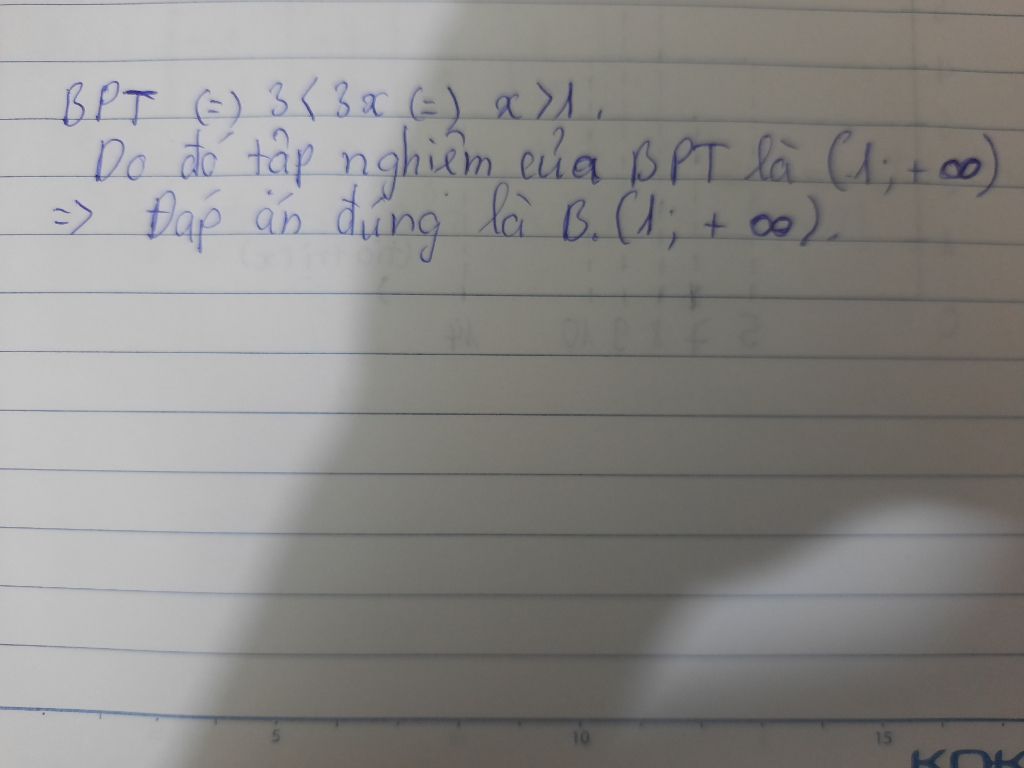 BPT (=) 3 < 3x (=) x > 1.
Do đó tập nghiệm của BPT là (1; + ∞)
=> Đáp án đúng là B. (1; + ∞).
5 10 15